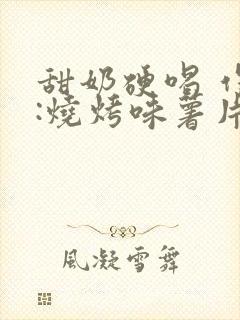 甜奶硬唱
:燒烤味薯片
風凝雪舞